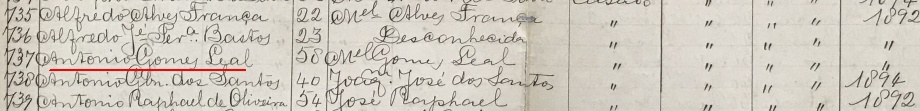 735 Alfredo Alves França 22 Mel Alves França " " " " 1892
736 Alfredo Je Fera. Bastos 23 Desconhecida " " " " "
737 Antonio Gomes Leal 58 Mel Gomes Leal " " " " "
738 Antonio Glz. dos Santos 40 Joaqm. José dos Santos " " " " 1894
739 Antonio Raphael de Oliveira 54 José Raphael " " " " 1892